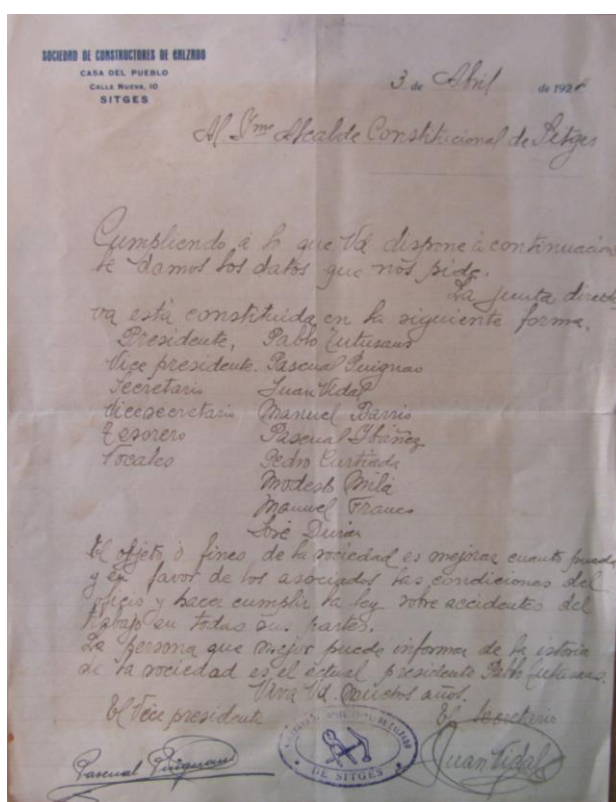 SOCIEDAD DE CONSTRUCTORES DE CALZADO
CASA DEL PUEBLO
CALLE NUEVA, 10
SITGES
3 de Abril de 192
Al Sme Alcalde Constitucional de Sitges
Cumpliendo á lo que Vd dispone á continuacion
le damos los datos que nos pide.
La junta directi
va está constituida en la siguiente forma.
Presidente, Pablo
Vice presidente. Pascual Puignau
Secretario Juan Vidal
Vicesecretario Manuel Barrio
Tesorero Pascual Ybáñez
Vocales Pedro Curtiada
Modesto Milá
Manuel Franco
José Durán
El objeto ó fines de la sociedad es mejorar cuanto pueda
y en favor de los asociados las condiciones del
oficio y hacer cumplir la ley sobre accidentes del
trabajo en todas sus partes.
La persona que mejor puede informar de la istoria
de la sociedad es el actual presidente Pablo
Viva Vd. muchos años.
El Vice presidente El Secretario
Pascual Puignau
DE SITGES
Juan Vidal